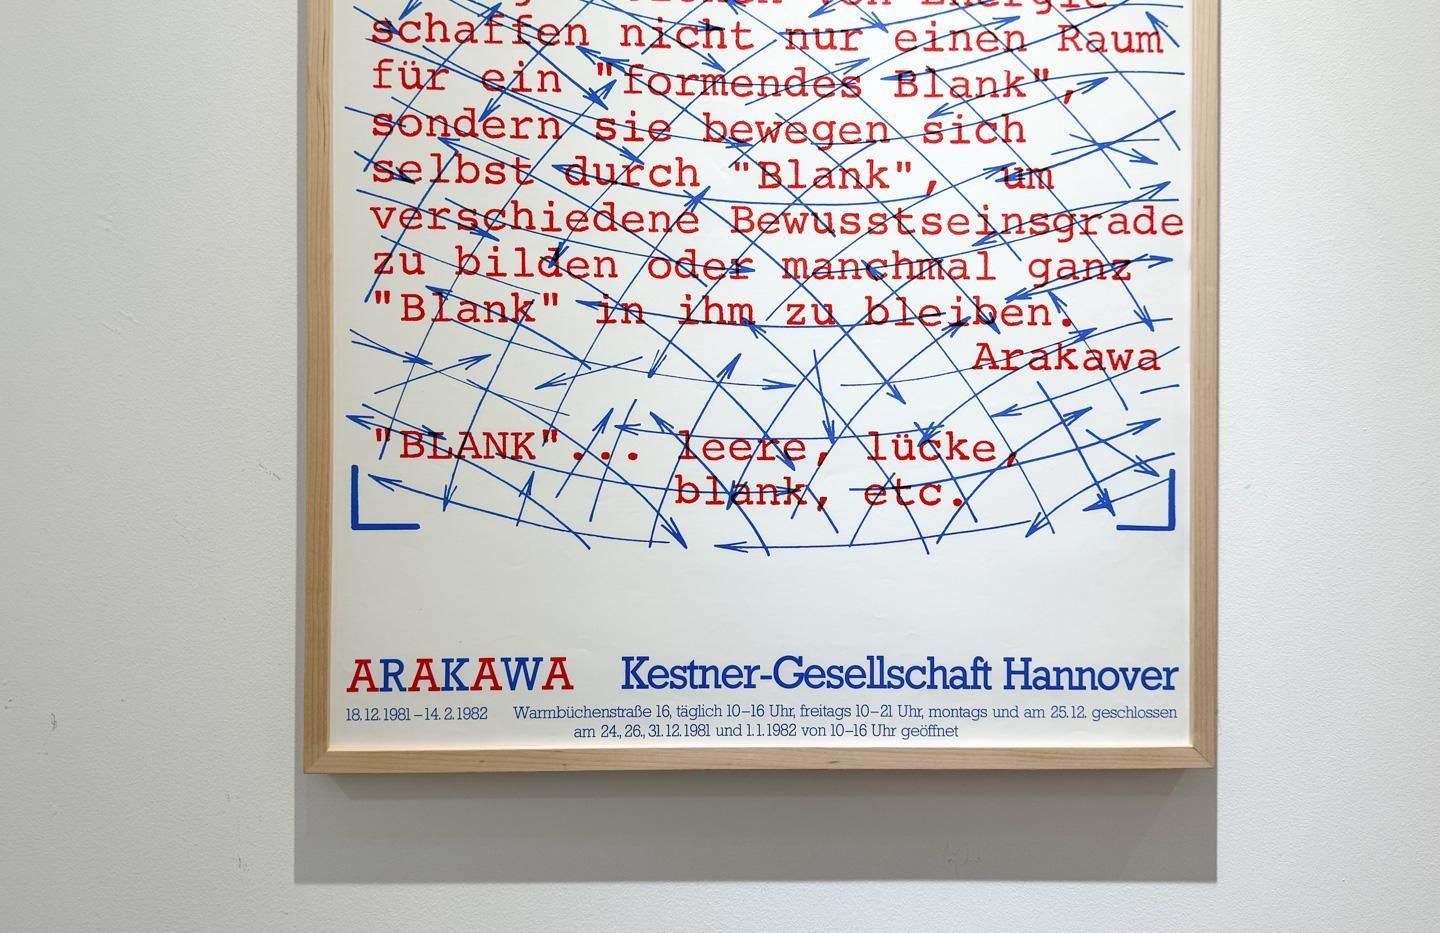 von Energie
schaffen nicht nur einen Raum
für ein "formendes Blank",
sondern sie bewegen sich
selbst durch "Blank", um
verschiedene Bewusstseinsgrade
zu bilden oder manchmal ganz
"Blank" in ihm zu bleiben.
Arakawa
"BLANK"... leere, lücke,
blank, etc.
ARAKAWA Kestner-Gesellschaft Hannover
18.12.1981–14.2.1982 Warmbüchenstraße 16, täglich 10–16 Uhr, freitags 10–21 Uhr, montags und am 25.12. geschlossen
am 24., 26., 31.12.1981 und 1.1.1982 von 10–16 Uhr geöffnet